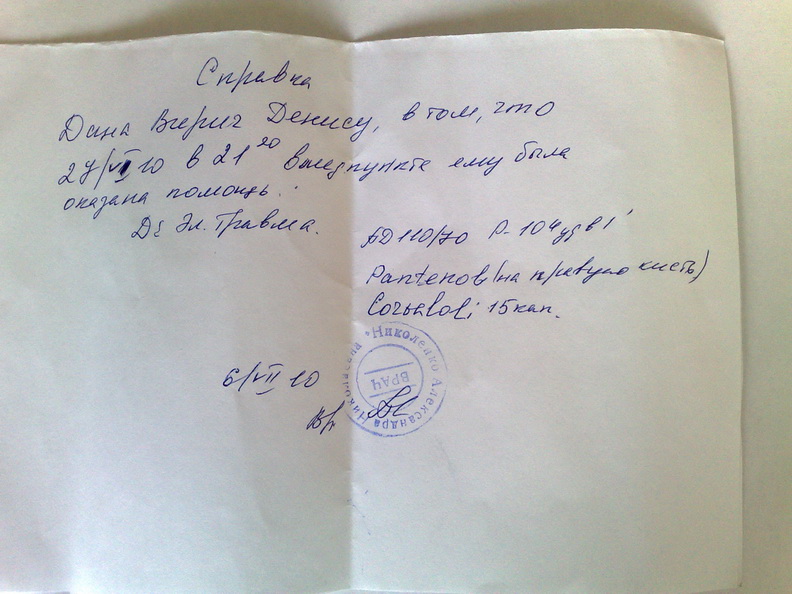 Справка
Дана Вгерич Денису, в том, что
в 21²⁰ в медпункте ему была
оказана помощь.
Ds Эл. Травма.
AD 110/70 P- 104 уд в 1'
Pantenol (на правую кисть)
Corvaloli 15 кап.
6/VII 10
Вр.
Николенко Александра Николаевна
ВРАЧ